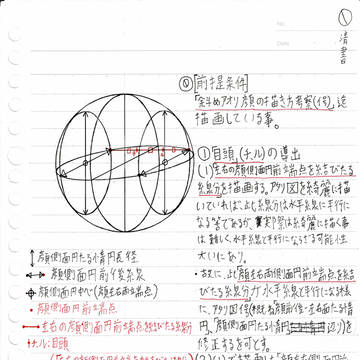 No.
Date
① 清書
⓪[前提条件]
「斜めアオリ顔の描き方考察(仮)」迄
描画している事。
①目頭(チル)の導出
(1)左右の顔側面円前端点を結びたる
線分を描画する。アタリ図を綺麗に描
いていれば、此の線分は水平線に平行に
なる筈であるが、実際は綺麗に描く事
は難しく水平線と平行にならざる可能性
大いにあり。
・故に、此「顔左右側面円前端点を結
びたる線分」が水平線と平行になる様
に、アタリ図
修正するを可とす。
顔側面円たる楕円長径
顔側面円前後系線
顔側面円中心(顔左右両端点)
・顔側面円前端点
左右の顔側面円前端点結びたる線分
チル:目頭